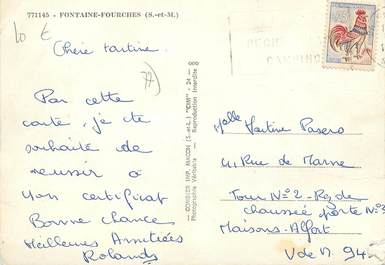 771145 - FONTAINE-FOURCHES (S.-et-M.)
10 €
Chère tartine.
77)
Par cette
carte, je te
souhaite de
reussir à
ton certificat
Bonne chance
Meilleures Amitiées
Roland
COMBIER IMP. MACON (S.-et-L.) "CIM" - 24 -
Photographie Véritable - Reproduction Interdite
CAMPING
Melle Martine Pasero
41 Rue de Marne
Tour N°2 - Rez de
chaussée porte N°3
Maisons-Alfort
V de M. 94